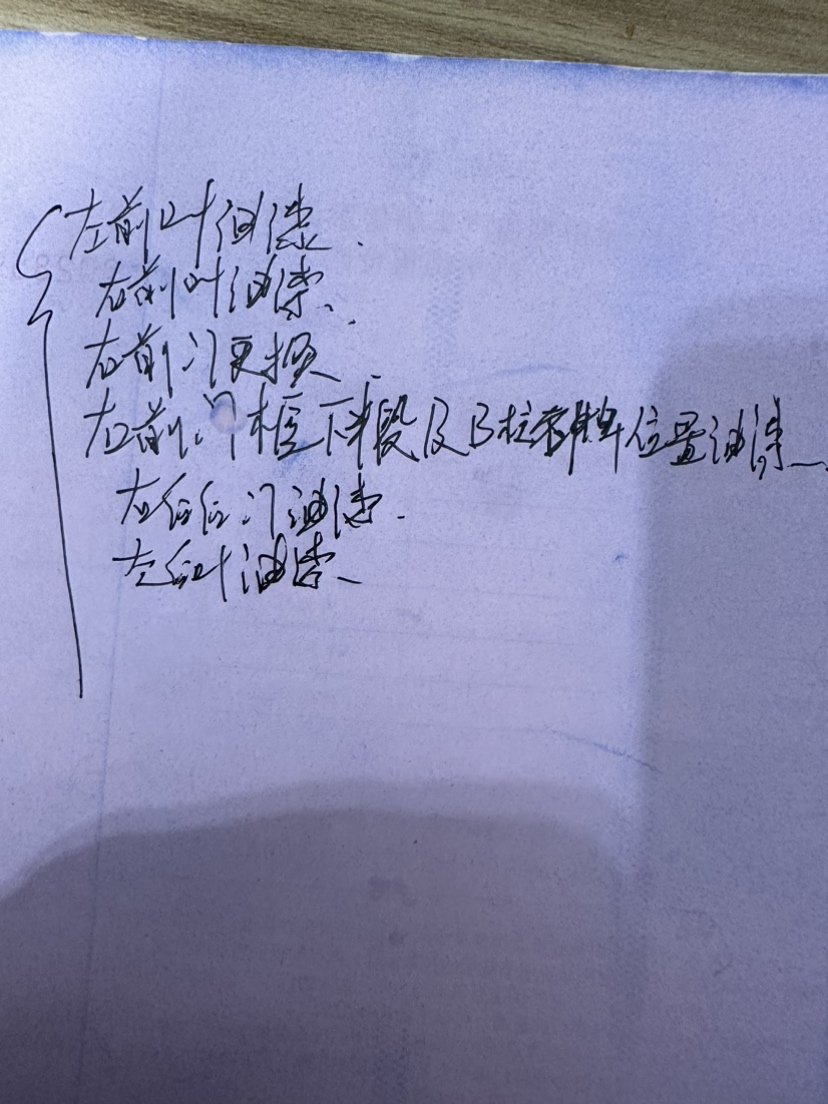 左前叶油漆.
右前叶油漆.
右前门更换.
右前门框下半段及B柱铭牌位置油漆
右后门油漆.
左后叶油漆